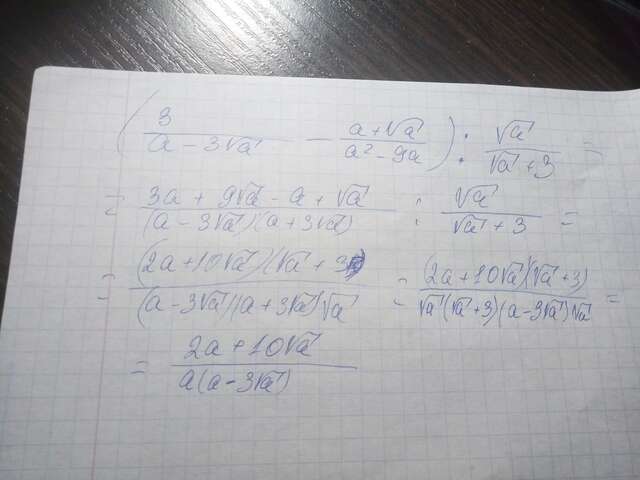 (3/(a - 3√a) - (a + √a)/(a² - 9a)) : √a/(√a + 3) =
= (3a + 9√a - a + √a)/((a - 3√a)(a + 3√a)) : √a/(√a + 3) =
= ((2a + 10√a)(√a + 3))/((a - 3√a)(a + 3√a)√a) = ((2a + 10√a)(√a + 3))/(√a(√a + 3)(a - 3√a)√a) =
= (2a + 10√a)/(a(a - 3√a))